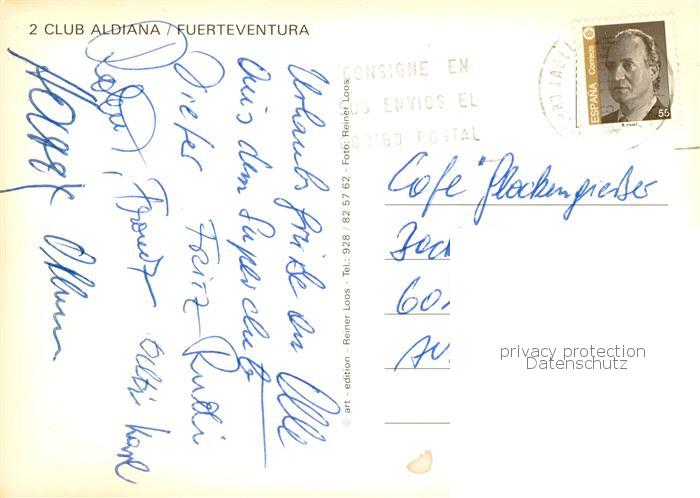 2 CLUB ALDIANA / FUERTEVENTURA
Urlaubs grüße an Alle
Aus dem Superclub
Dieter Fritz Rudi
Robert, Franz
© art - edition - Reiner Loos - Tel.: 928 / 82 57 62 - Foto: Reiner Loos
CONSIGNE EN
SUS ENVIOS EL
CODIGO POSTAL
ESPAÑA Correos
55
Cafe Glockengießer
60
privacy protection
Datenschutz